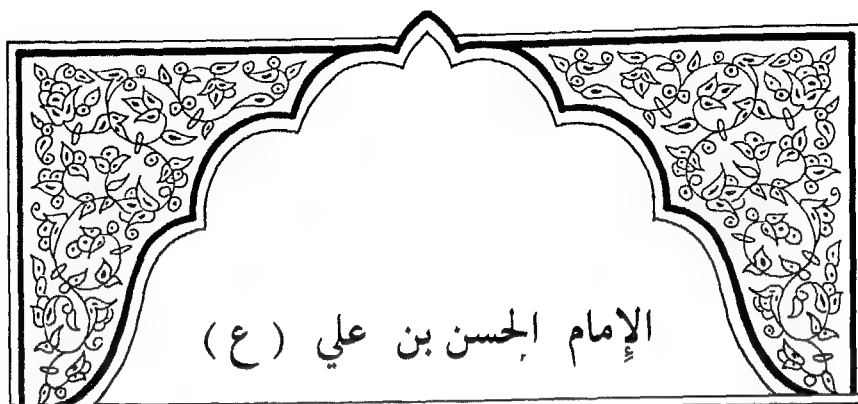 الإِمام الحسن بن علي ( ع )